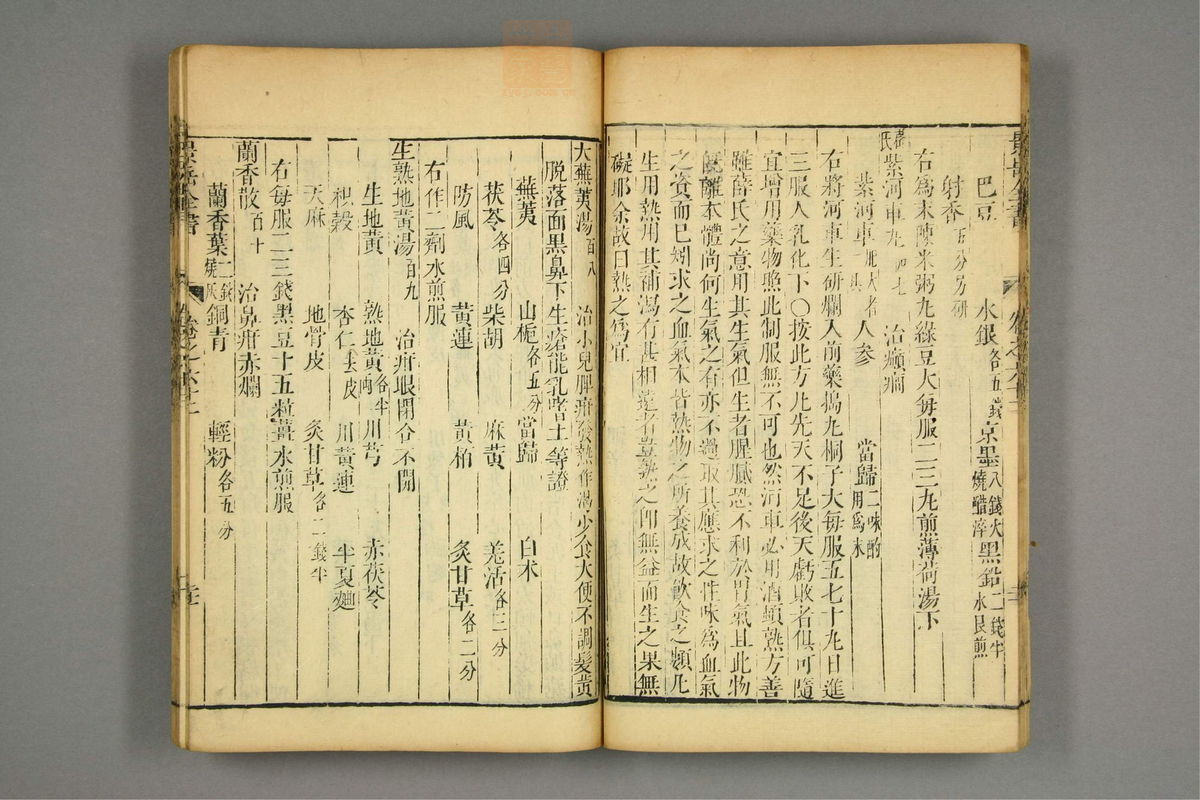 巴豆 水銀各五錢 京墨八錢火燒醋淬 黑鉛二錢半水艮煎
射香五分另研
右爲末陳米粥丸綠豆大每服二三丸煎薄荷湯下
薛氏紫河車丸 治癲癇
紫河車肥大者 人參 當歸二味酌用爲末
右將河車生研爛入前藥搗丸桐子大每服五七十丸日進
三服人乳化下○按此方凡先天不足後天虧敗者俱可隨
宜增用藥物照此制服無不可也然河車必用酒頓熟方善
雖薛氏之意用其生氣但生者腥膩恐不利於胃氣且此物
既離本體尚何生氣之有亦不過取其應求之性味爲血氣
之資而已矧求之血氣本皆熱物之所養成故飲食之類凡
生用熟用其補瀉有甚相遠者豈熟之則無益而生之果無
礙耶余故曰熟之爲宜
大蕪荑湯百八 治小兒脾疳發熱作渴少食大便不調髮黄
脫落面黑鼻下生瘡能乳嗜土等證
蕪荑 山梔各五分 當歸 白朮
茯苓各四分 柴胡 麻黄 羌活各三分
防風 黄連 黄柏 炙甘草各二分
右作二劑水煎服
生熟地黄湯百九 治疳眼閉合不開
生地黄 熟地黄各半兩 川芎 赤茯苓
枳殼 杏仁去皮 川黄連 半夏麯
天麻 地骨皮 炙甘草各二錢半
右每服二三錢黑豆十五粒薑水煎服
蘭香散百十 治鼻疳赤爛
蘭香葉二錢燒灰 銅青 輕粉各五分